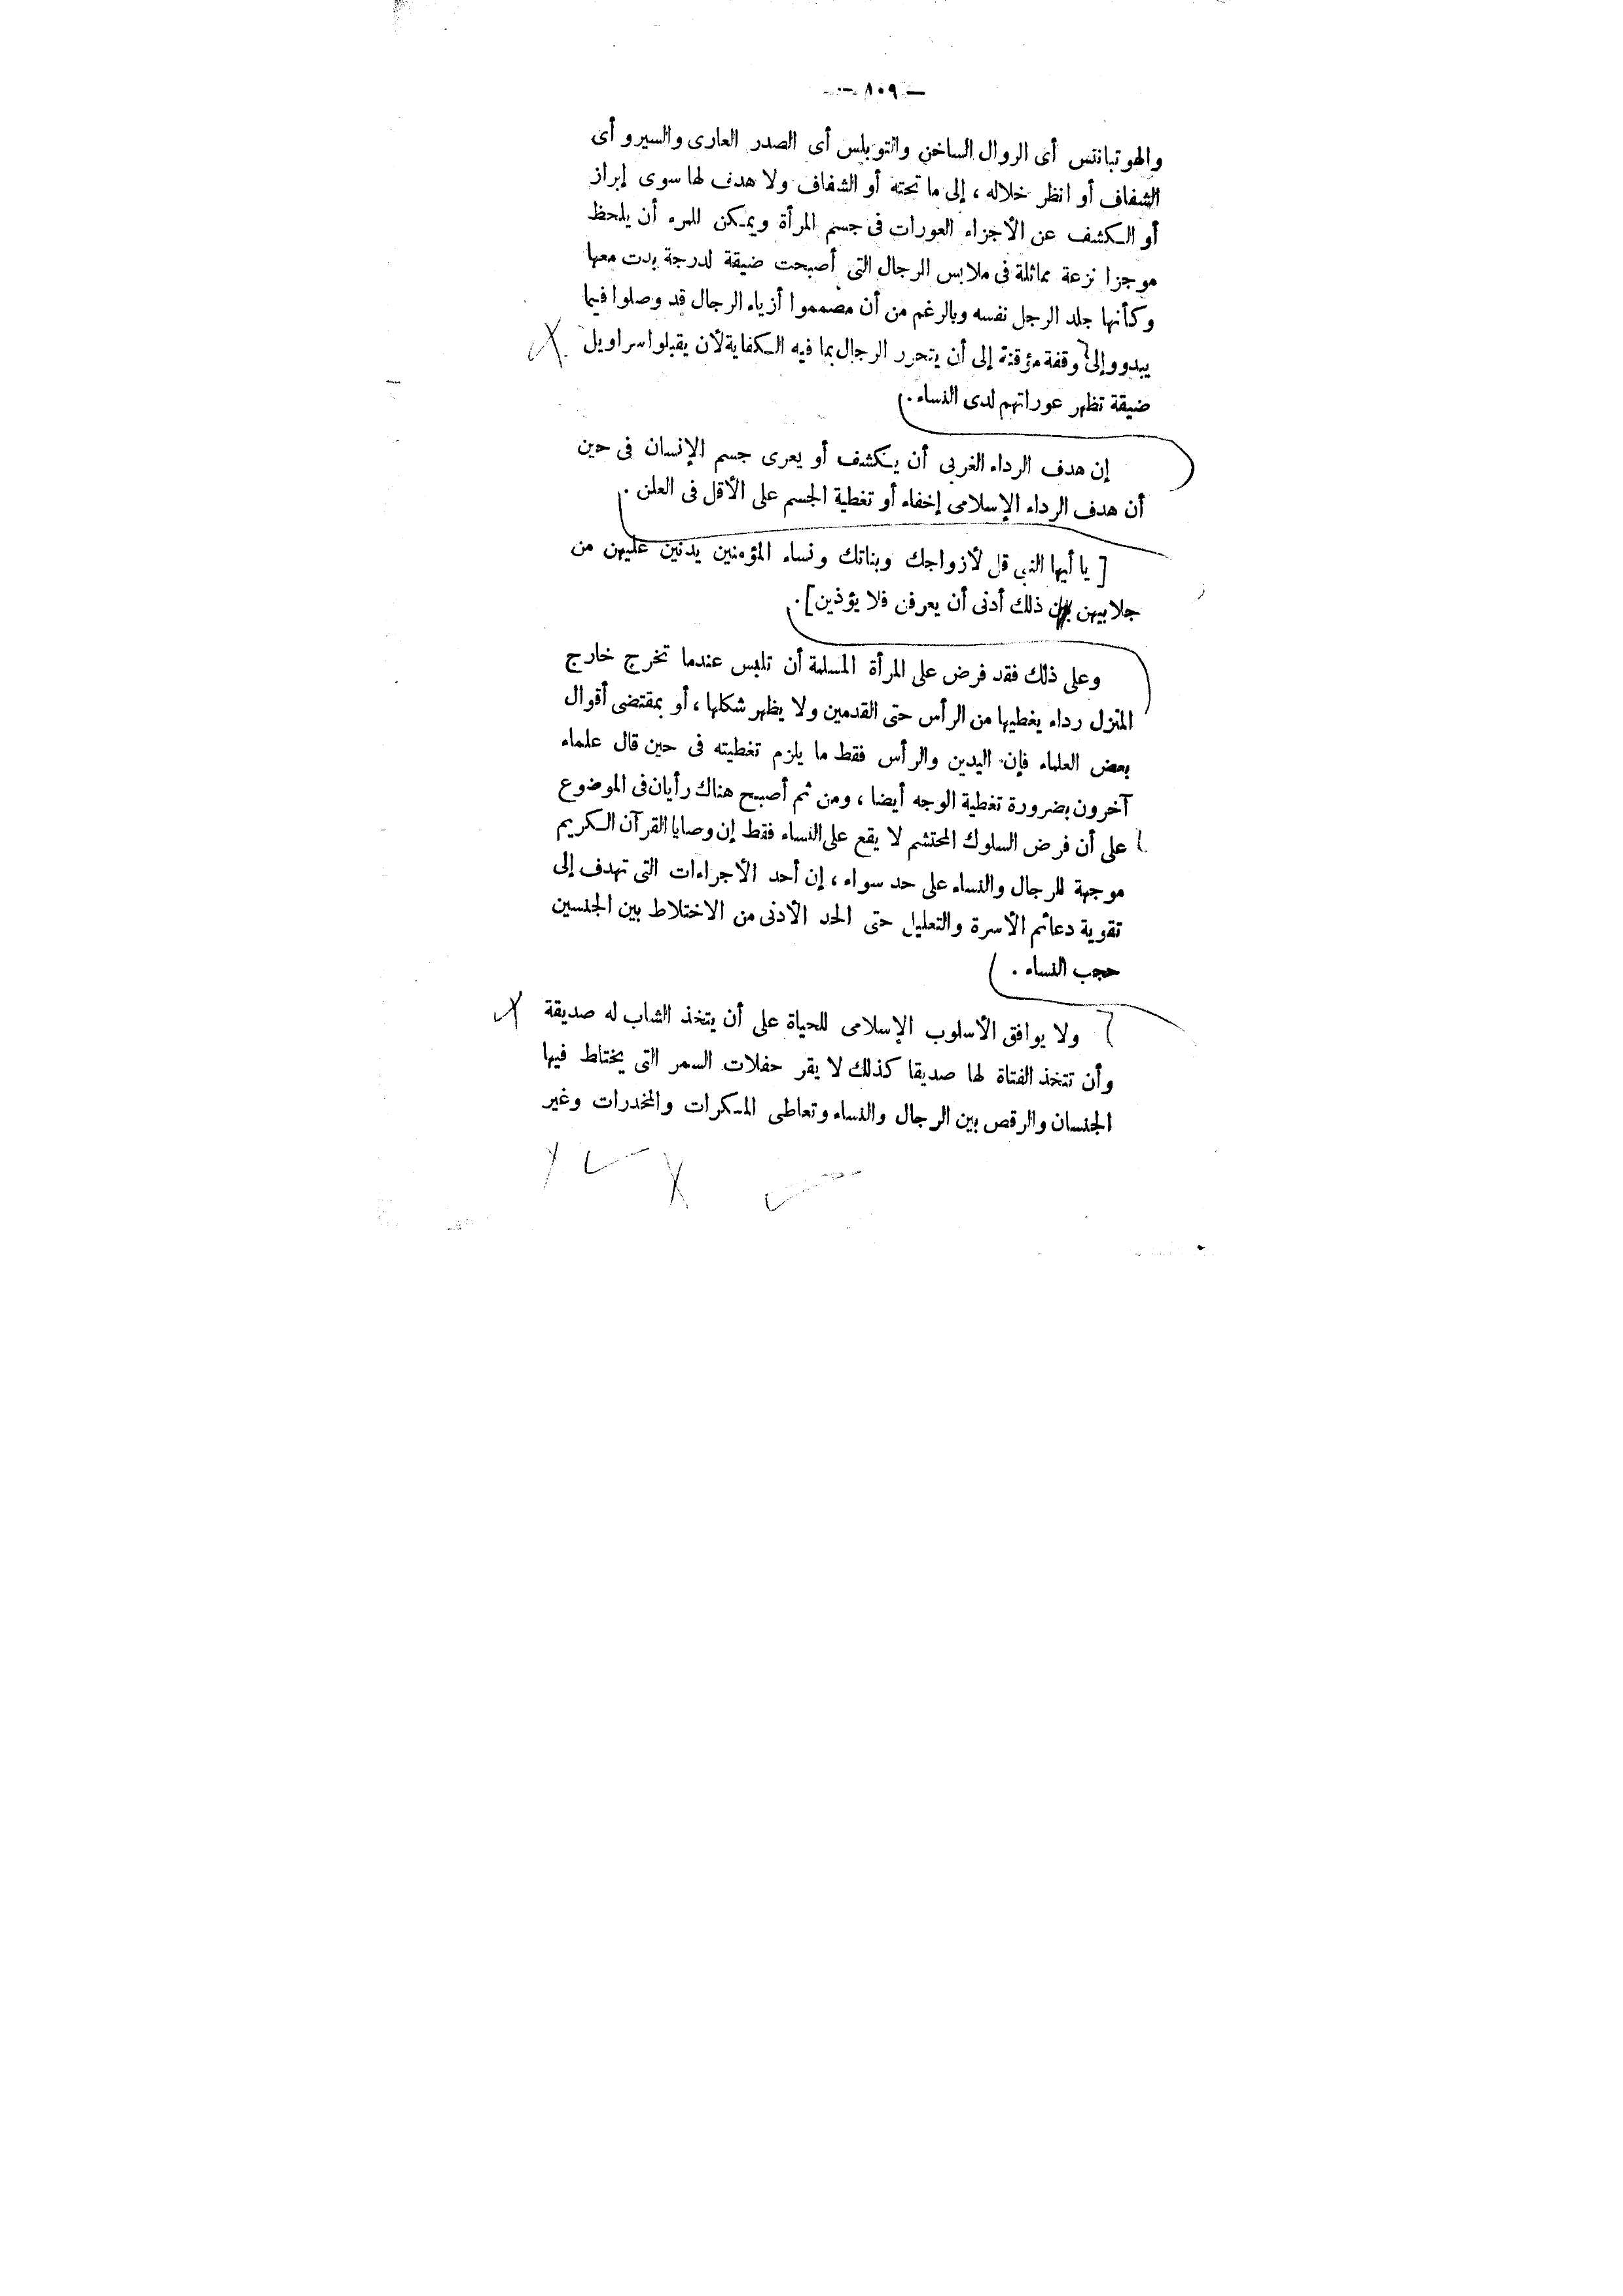 — ٨٠٩ —
والهوتبانتس أى الروال الساخن والتوبلس أى الصدر العارى والسيرو أى
الشفاف أو انظر خلاله ، إلى ما تحته أو الشفاف ولا هدف لها سوى إبراز
أو الكشف عن الأجزاء العورات فى جسم المرأة ويمكن للمرء أن يلحظ
موجزا نزعة مماثلة فى ملابس الرجال التى أصبحت ضيقة لدرجة بدت معها
وكأنها جلد الرجل نفسه وبالرغم من أن مصمموا أزياء الرجال قد وصلوا فيما
يبدو وإلى وقفة مؤقتة إلى أن يتحرر الرجال بما فيه الكفاية لأن يقبلوا سراويل
ضيقة تظهر عوراتهم لدى النساء .
إن هدف الرداء الغربى أن يكشف أو يعرى جسم الإنسان فى حين
أن هدف الرداء الإسلامى إخفاء أو تغطية الجسم على الأقل فى العلن .
[ يا أيها النبى قل لأزواجك وبناتك ونساء المؤمنين يدنين عليهن من
جلابيهن ذلك أدنى أن يعرفن فلا يؤذين ] .
وعلى ذلك فقد فرض على المرأة المسلمة أن تلبس عندما تخرج خارج
المنزل رداء يغطيها من الرأس حتى القدمين ولا يظهر شكلها ، أو بمقتضى أقوال
بعض العلماء فإن اليدين والرأس فقط ما يلزم تغطيته فى حين قال علماء
آخرون بضرورة تغطية الوجه أيضا ، ومن ثم أصبح هناك رأيان فى الموضوع
على أن فرض السلوك المحتشم لا يقع على النساء فقط إن وصايا القرآن الكريم
موجهة للرجال والنساء على حد سواء ، إن أحد الأجراءات التى تهدف إلى
تقوية دعائم الأسرة والتعليل حتى الحد الأدنى من الاختلاط بين الجنسين
حجب النساء .
ولا يوافق الأسلوب الإسلامى للحياة على أن يتخذ الشاب له صديقة
وأن تتخذ الفتاة لها صديقا كذلك لا يقر حفلات السمر التى يختلط فيها
الجنسان والرقص بين الرجال والنساء وتعاطى المسكرات والمخدرات وغير